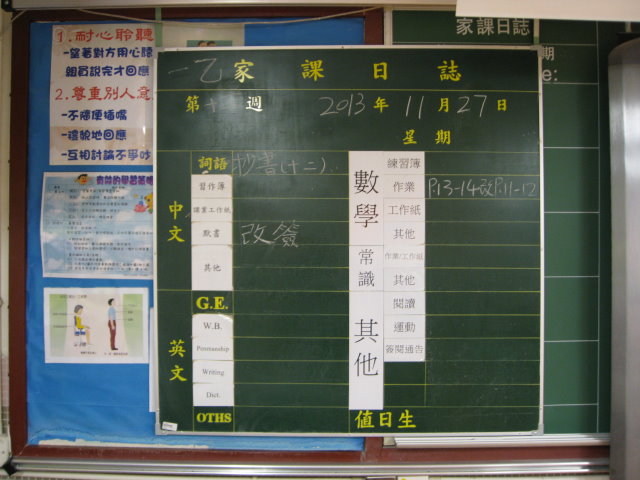 1.耐心聆聽
-望著對方用心聽
組員說完才回應
2.尊重別人意
-不隨便插嘴
-禮貌地回應
-互相討論不爭吵
家課日誌
期
e:
一乙家課日誌
第十 週 2013年11月27日
星期
中文
詞語 抄書(十二)
習作簿
課業工作紙
默書 改簽
其他
英文
G.E.
W.B.
Penmanship
Writing
Dict.
OTHS
數學
練習簿
作業 P.13-14改P.11-12
工作紙
其他
常識
作業/工作紙
其他
其他
閱讀
運動
簽閱通告
值日生